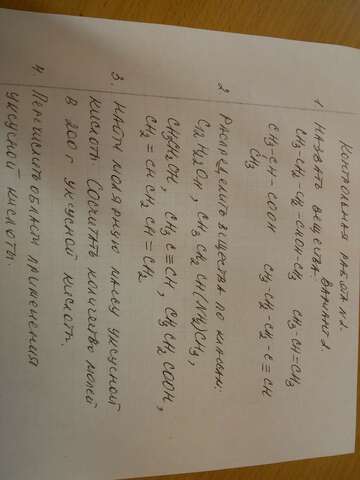 Контрольная работа №2.
Вариант 2.
1 Назвать вещества:
CH3-CH2-CH2-CHOH-CH3 CH3-CH=CH3
CH3-CH-COOH CH3-CH2-CH2-C≡CH
CH3
2 Распределить вещества по классам:
C12H22O11, CH3CH2CH(NH2)CH3,
CH3CH2OH, CH3C≡CH, CH3CH2COOH,
CH2=CHCH2CH=CH2
3. Найти молярную массу уксусной
кислоты. Сосчитать количество молей
в 200 г уксусной кислоты.
4. Перечислить области применения
уксусной кислоты.